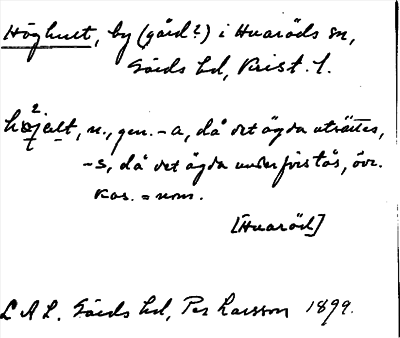 Höghult, by (gård?) i Huaröds sn,
Gärds hd, Krist. l.
n., gen. -a, då det ägda utsättes,
-s, då det ägda underförstås, övr.
Kas. = nom.
[Huaröd]
L A L. Gärds hd, Per Larsson 1899.